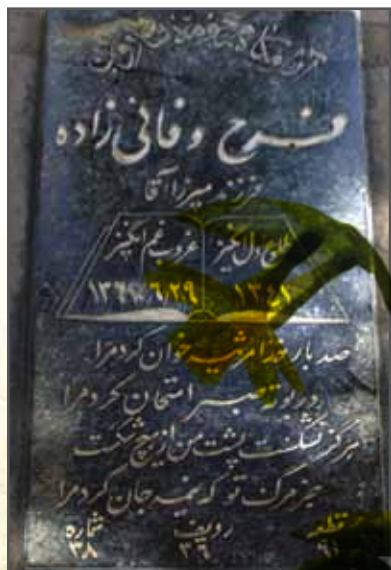 فرح وفائی زاده
فرزند میرزا آقا
طلوع دل انگیز غروب غم انگیز
۱۳۴۱
صد بار خدا مرثیه خوان کرد مرا
در بوته صبر امتحان کرد مرا
هرگز نشکست پشت من از هیچ شکست
جز مرگ تو که نیمه جان کرد مرا
قطعه ردیف شماره
۹۱ ۳۶ ۳۸